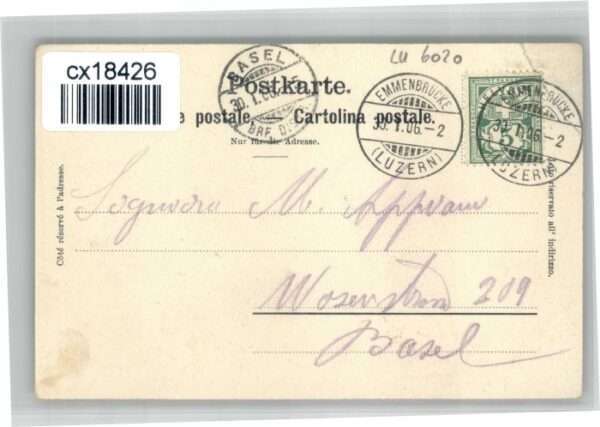 cx18426
LU 6020
BASEL
30.I.06
BRF. D
EMMENBRÜCKE
30.I.06.-2
(LUZERN)
EMMENBRÜCKE
30.I.06.-2
(LUZERN)
HELVETIA
5
Postkarte.
e postale. Cartolina postale.
Nur für die Adresse.
Côté réservé à l'adresse.
Lato riservato all' indirizzo.
Signora M.
209
Basel